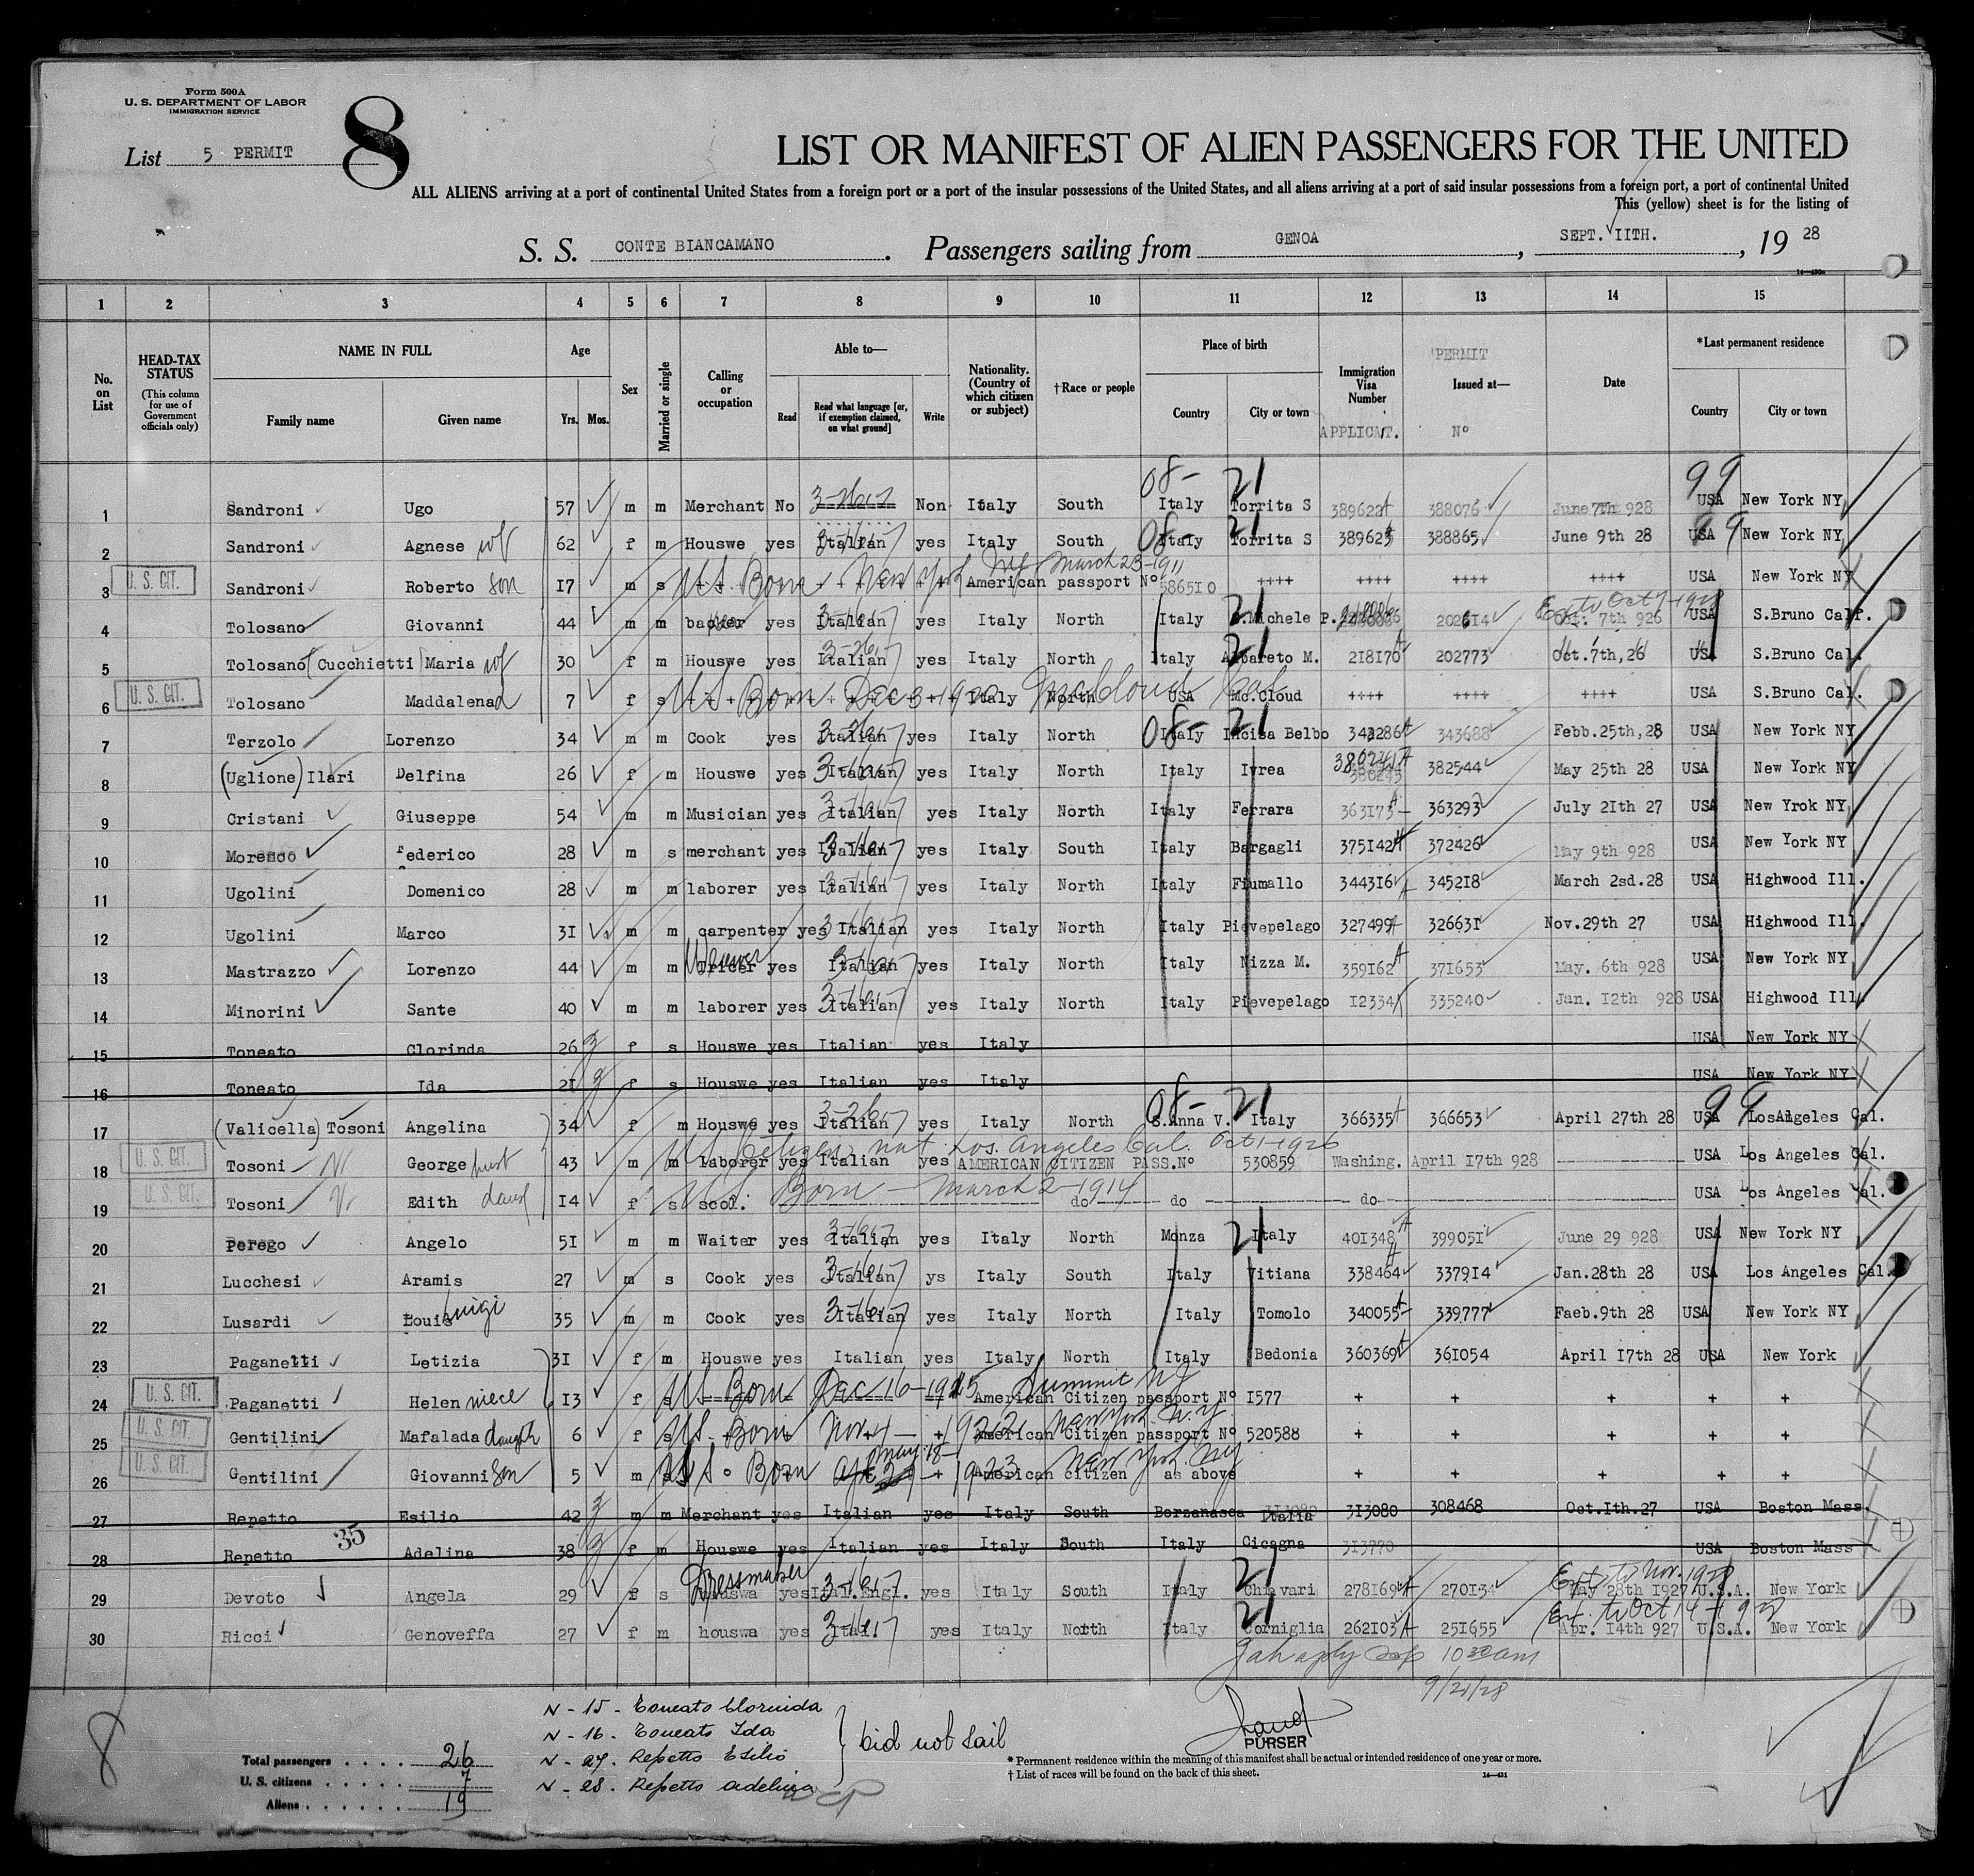 Form 500A
U. S. DEPARTMENT OF LABOR
IMMIGRATION SERVICE
List 5 PERMIT
8
LIST OR MANIFEST OF ALIEN PASSENGERS FOR THE UNITED
ALL ALIENS arriving at a port of continental United States from a foreign port or a port of the insular possessions of the United States, and all aliens arriving at a port of said insular possessions from a foreign port, a port of continental United
This (yellow) sheet is for the listing of
S. S. CONTE BIANCAMANO. Passengers sailing from GENOA, SEPT. IITH., 19 28
1 2 3 4 5 6 7 8 9 10 11 12 13 14 15
No. on List
HEAD-TAX STATUS (This column for use of Government officials only)
NAME IN FULL Family name Given name
Age Yrs. Mos.
Sex
Married or single
Calling or occupation
Able to— Read Read what language [or, if exemption claimed, on what ground] Write
Nationality. (Country of which citizen or subject)
†Race or people
Place of birth Country City or town
Immigration Visa Number APPLICAT.
PERMIT Issued at— Nº
Date
*Last permanent residence Country City or town
08- 21 99
1 Sandroni Ugo 57 m m Merchant No Non Italy South Italy Torrita S 389622 388076 June 7th 928 USA New York NY
2 Sandroni Agnese wf 62 f m Houswe yes Italian yes Italy South Italy Torrita S 389623 388865 June 9th 28 USA New York NY
3 U. S. CIT. Sandroni Roberto son 17 m s U.S. Born New York NY March 23-1911 American passport Nº 586510 ++++ ++++ ++++ ++++ USA New York NY
4 Tolosano Giovanni 44 m m yes Italian yes Italy North Italy S.Michele P. 202614 Oct. 7th 926 Ex to Oct 7-1928 USA S.Bruno Calf.
5 Tolosano (Cucchietti) Maria wf 30 f m Houswe yes Italian yes Italy North Italy Albareto M. 218170 202773 Oct.7th,26 USA S.Bruno Cal.
6 U. S. CIT. Tolosano Maddalena d 7 f s U.S. Born Dec 3-1920 McCloud Cal Italy North USA Mc.Cloud ++++ ++++ ++++ USA S.Bruno Cal.
7 Terzolo Lorenzo 34 m m Cook yes Italian yes Italy North Italy Incisa Belbo 343286 343688 Febb.25th,28 USA New York NY
8 (Uglione) Ilari Delfina 26 f m Houswe yes Italian yes Italy North Italy Ivrea 380245 382544 May 25th 28 USA New York NY
9 Cristani Giuseppe 54 m m Musician yes Italian yes Italy North Italy Ferrara 363173 363293 July 2Ith 27 USA New Yrok NY
10 Moresco Federico 28 m s merchant yes Italian yes Italy South Italy Bargagli 375142 372426 May 9th 928 USA New York NY
11 Ugolini Domenico 28 m m laborer yes Italian yes Italy North Italy Fiumallo 344316 345218 March 2sd.28 USA Highwood Ill.
12 Ugolini Marco 31 m m carpenter yes Italian yes Italy North Italy Pievepelago 327499 326631 Nov.29th 27 USA Highwood Ill.
13 Mastrazzo Lorenzo 44 m m yes Italian yes Italy North Italy Nizza M. 359162 371653 May. 6th 928 USA New York NY
14 Minorini Sante 40 m m laborer yes Italian yes Italy North Italy Pievepelago 12334 335240 Jan. 12th 928 USA Highwood Ill.
15 Toneato Clorinda 26 f s Houswe yes Italian yes Italy USA New York NY
16 Toneato Ida 21 f s Houswe yes Italian yes Italy USA New York NY
17 (Valicella) Tosoni Angelina 34 f m Houswe yes Italian yes Italy North S.Anna V. Italy 366335 366653 April 27th 28 USA LosAngeles Cal.
18 U. S. CIT. Tosoni George husb 43 m m laborer yes Italian yes U.S. Citizen nat Los Angeles Cal. Oct 1-1926 AMERICAN CITIZEN PASS.Nº 530859 Washing. April 17th 928 USA Los Angeles Cal.
19 U. S. CIT. Tosoni Edith daug 14 f s scol. U.S. Born - March 2-1914 do do do USA Los Angeles Cal.
20 Perego Angelo 51 m m Waiter yes Italian yes Italy North Monza Italy 401348 399051 June 29 928 USA New York NY
21 Lucchesi Aramis 27 m s Cook yes Italian ys Italy South Italy Vitiana 338464 337914 Jan.28th 28 USA Los Angeles Cal.
22 Lusardi Louis Luigi 35 m m Cook yes Italian yes Italy North Italy Tomolo 340055 339777 Faeb.9th 28 USA New York NY
23 Paganetti Letizia 31 f m Houswe yes Italian yes Italy North Italy Bedonia 360369 361054 April 17th 28 USA New York
24 U. S. CIT. Paganetti Helen niece 13 f s U.S. Born Dec 16-1915 Summit NJ American Citizen passport Nº 1577 + + + + +
25 U. S. CIT. Gentilini Mafalada daugh 6 f s U.S. Born Nov 4 - 1922 New York N.Y American Citizen passport Nº 520588 + + + + +
26 U. S. CIT. Gentilini Giovanni son 5 m s U.S. Born May 18- 1923 New York NY American citizen as above + + + + +
27 Repetto Esilio 42 m m Merchant yes Italian yes Italy South Borzanasca Italia 313080 308468 Oct.Ith.27 USA Boston Mass.
35
28 Repetto Adelina 38 f m Houswe yes Italian yes Italy South Italy Cicagna 313770 USA Boston Mass
29 Devoto Angela 29 f s Dressmaker houswa yes Ital.Engl. yes Italy South Italy Chiavari 278169 270134 May 28th 1927 Ext to Nov. 1928 U.S.A. New York
30 Ricci Genoveffa 27 f m houswa yes Ital. yes Italy North Italy Corniglia 262103 251655 Apr. 14th 927 Ex. to Oct 14 - 1928 U.S.A. New York
10 30 am
9/21/28
8
N - 15 - Toneato Clorinda
N - 16 - Toneato Ida
N - 27 - Repetto Esilio
N - 28 - Repetto Adelina
} Did not sail
PURSER
Total passengers . . . . 26
U. S. citizens . . . . . 7
Aliens . . . . . . 19
* Permanent residence within the meaning of this manifest shall be actual or intended residence of one year or more.
† List of races will be found on the back of this sheet.